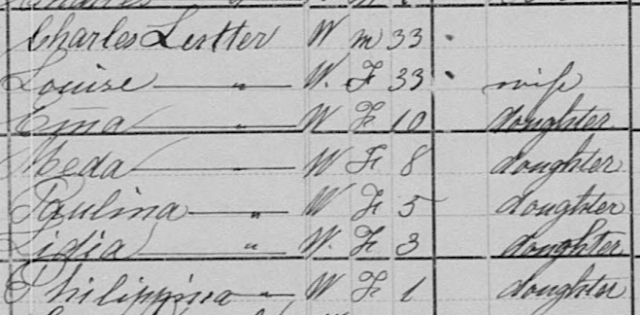 Charles Lertter W m 33
Louise " W. F 33 wife
Ema " W F 10 doughter
Meda " W F 8 doughter
Paulina " W F 5 doughter
Lidia " W. F 3 doughter
Philippina " W F 1 doughter